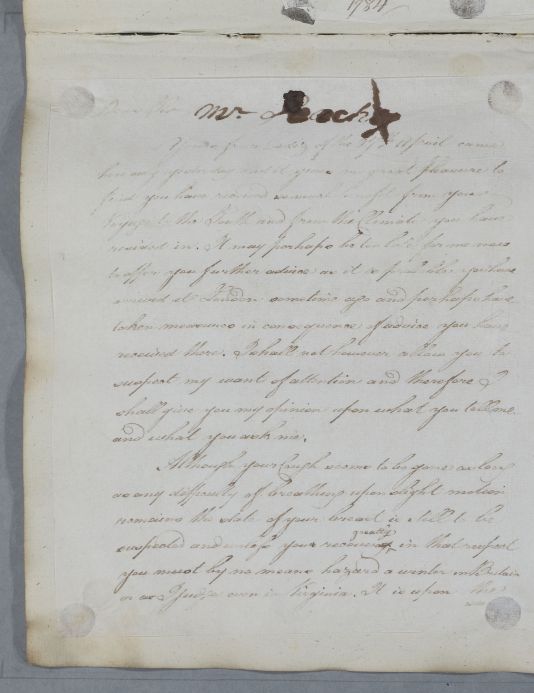 1784
Dear Sir Mr
Yours from Cadiz of the April came
here only yesterday and it gives me great pleasure to
find you have received so much benefit from your
Voyage to the South and from the Climate you have
resided in. It may perhaps be too late for me now
to offer you further advice as it is probable you have
arrived at London sometime ago and perhaps have
taken measures in consequence of advice you have
received there. I shall not however allow you to
suspect my want of attention and therefore I
shall give you my opinion upon what you tell me
and what you ask me.
Although your Cough seems to be gone as long
as any difficulty of breathing upon slight motion
remains the state of your breast is still to be
greatly
suspected and unless you recover in that respect
you must by no means hazard a winter in Britain
or as I judge even in Virginia. It is upon the